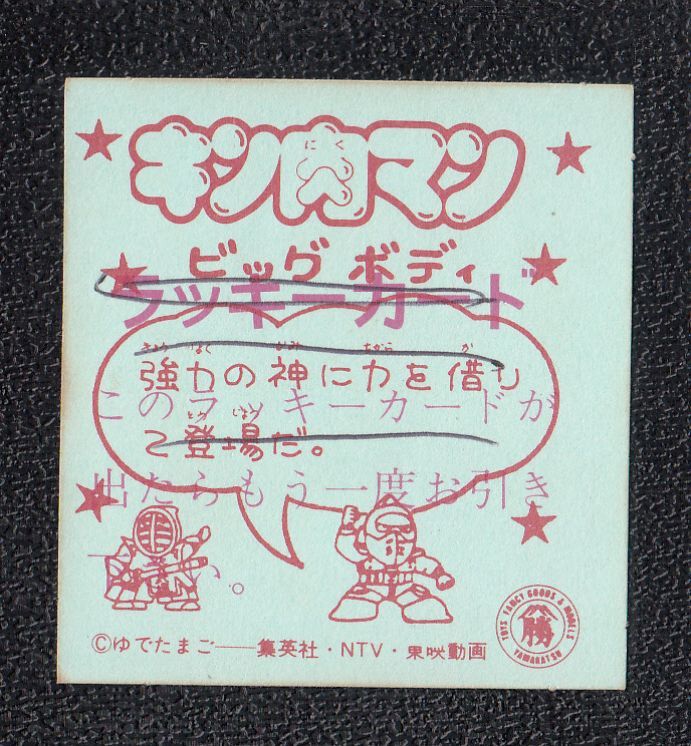 キン肉マン
にく
ビッグ ボディ
ラッキーカード
強力の神に力を借り
このラッキーカードが
て登場だ。
出たらもう一度お引き
い。
©ゆでたまご──集英社・NTV・東映動画
TOYS FANCY GOODS & MODELS
勝
YAMAKATSU